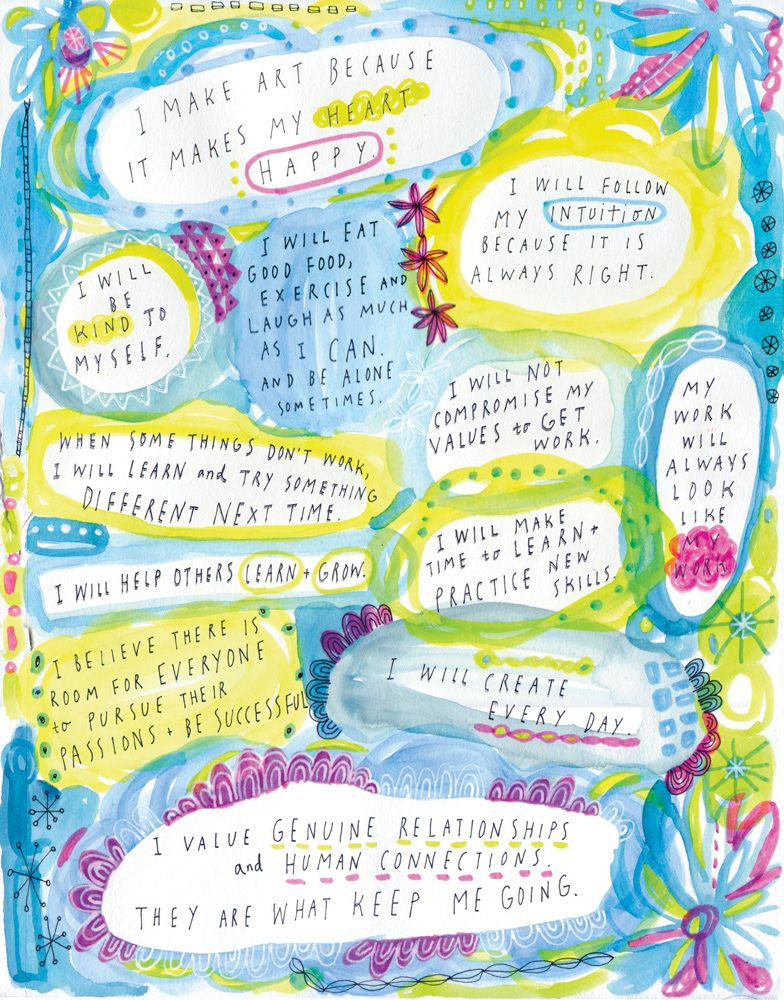 I MAKE ART BECAUSE
IT MAKES MY HEART
HAPPY.
I WILL FOLLOW
MY INTUITION
BECAUSE IT IS
ALWAYS RIGHT.
I WILL
BE
KIND TO
MYSELF.
I WILL EAT
GOOD FOOD,
EXERCISE AND
LAUGH AS MUCH
AS I CAN.
AND BE ALONE
SOMETIMES.
I WILL NOT
COMPROMISE MY
VALUES to GET
WORK.
MY
WORK
WILL
ALWAYS
LOOK
LIKE
MY
WORK.
WHEN SOME THINGS DON'T WORK,
I WILL LEARN and TRY SOMETHING
DIFFERENT NEXT TIME.
I WILL MAKE
TIME to LEARN +
PRACTICE NEW
SKILLS.
I WILL HELP OTHERS LEARN + GROW.
I BELIEVE THERE IS
ROOM FOR EVERYONE
to PURSUE THEIR
PASSIONS + BE SUCCESSFUL
I WILL CREATE
EVERY DAY.
I VALUE GENUINE RELATIONSHIPS
and HUMAN CONNECTIONS.
THEY ARE WHAT KEEP ME GOING.